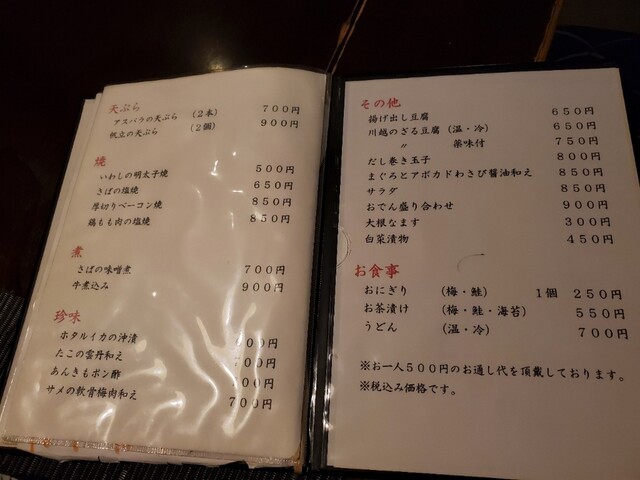 天ぷら
アスパラの天ぷら （２本） ７００円
帆立の天ぷら （２個） ９００円
焼
いわしの明太子焼 ５００円
さばの塩焼 ６５０円
厚切りベーコン焼 ８５０円
鶏もも肉の塩焼 ８５０円
煮
さばの味噌煮 ７００円
牛煮込み ９００円
珍味
ホタルイカの沖漬
たこの雲丹和え
あんきもポン酢
サメの軟骨梅肉和え ７００円
その他
揚げ出し豆腐 ６５０円
川越のざる豆腐（温・冷） ６５０円
〃 薬味付 ７５０円
だし巻き玉子 ８００円
まぐろとアボカドわさび醤油和え ８５０円
サラダ ８５０円
おでん盛り合わせ ９００円
大根なます ３００円
白菜漬物 ４５０円
お食事
おにぎり （梅・鮭） １個 ２５０円
お茶漬け （梅・鮭・海苔） ５５０円
うどん （温・冷） ７００円
※お一人５００円のお通し代を頂戴しております。
※税込み価格です。